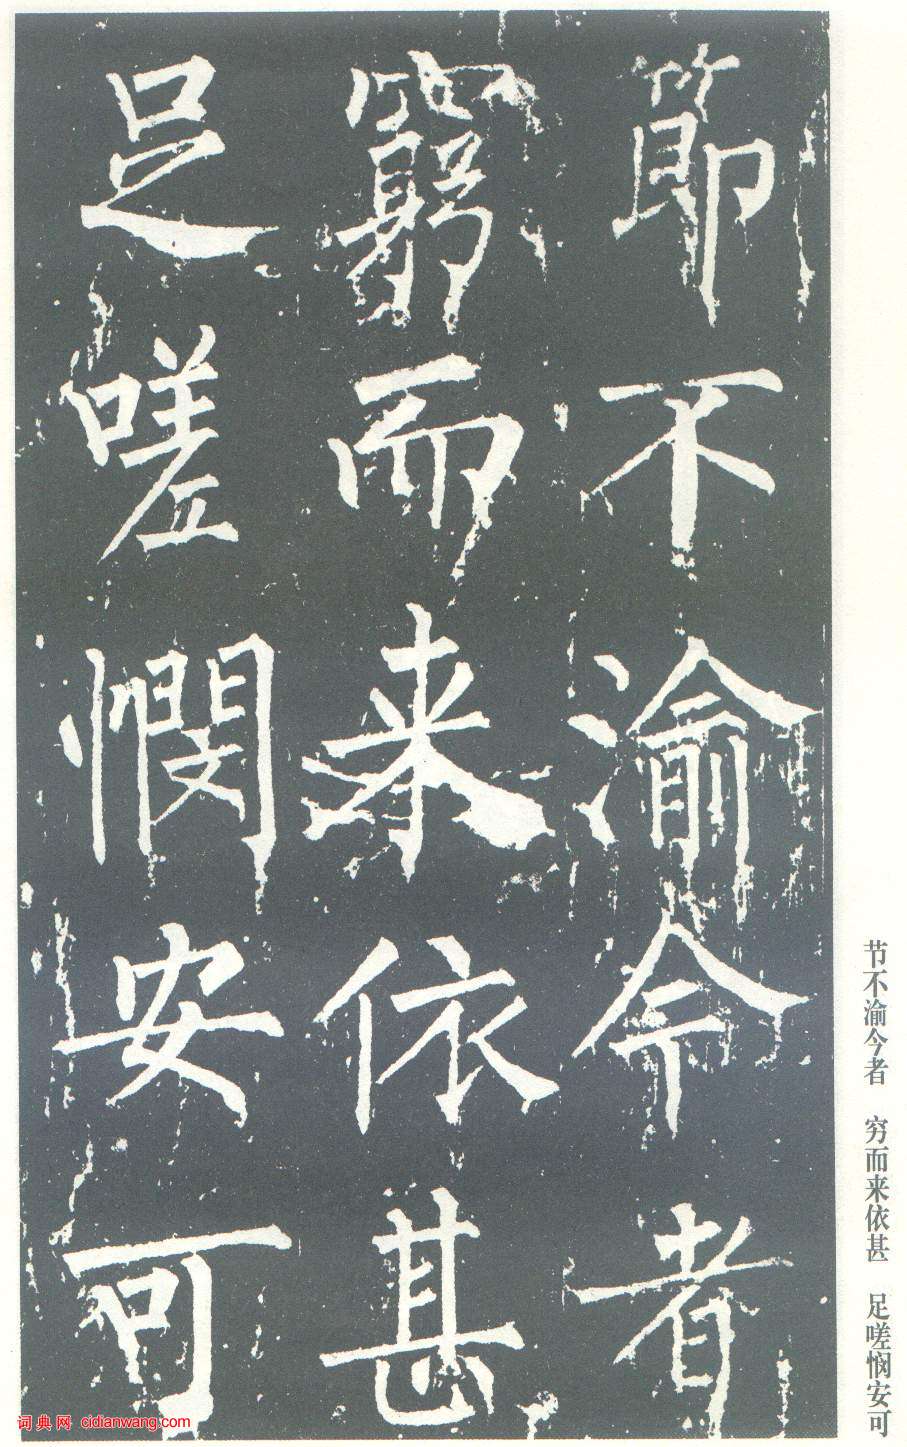 節不渝今者
窮而来依甚
足嗟憫安可
节不渝今者 穷而来依甚 足嗟悯安可
词典网 cidianwang.com